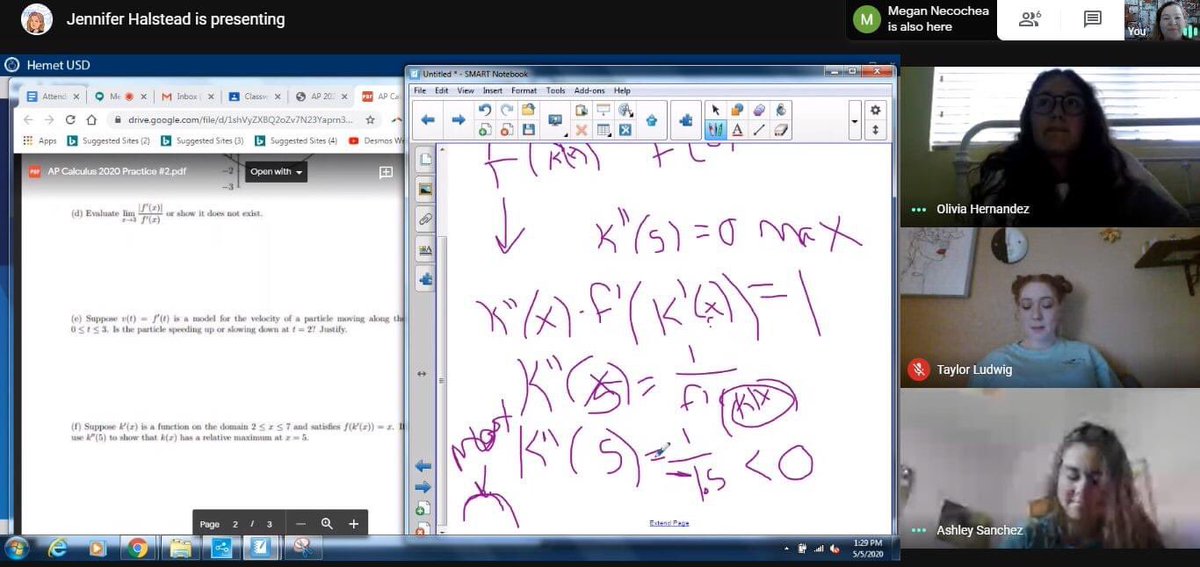 Jennifer Halstead is presenting
M
Megan Necochea
is also here
6
You
Hemet USD
Attend
Me
Inbox
Classw
AP 202
AP Cal
drive.google.com/file/d/1shVyZXBQ2oZv7N23Yaprn3...
Apps
Suggested Sites (2)
Suggested Sites (3)
Suggested Sites (4)
Desmos
AP Calculus 2020 Practice #2.pdf
Open with
-2
-3
(d) Evaluate lim x→3 |f'(x)| / f'(x) or show it does not exist.
(e) Suppose v(t) = f'(t) is a model for the velocity of a particle moving along the
0 ≤ t ≤ 3. Is the particle speeding up or slowing down at t = 2? Justify.
(f) Suppose k'(x) is a function on the domain 2 ≤ x ≤ 7 and satisfies f(k'(x)) = x.
use k''(5) to show that k(x) has a relative maximum at x = 5.
Page 2 / 3
Untitled * - SMART Notebook
File Edit View Insert Format Tools Add-ons Help
k''(5) = 0 max
k''(x)·f'(k'(x)) = 1
k''(5) = 1
k''(5) = 1/-1.5 < 0
Extend Page
Olivia Hernandez
Taylor Ludwig
Ashley Sanchez
1:29 PM
5/5/2020